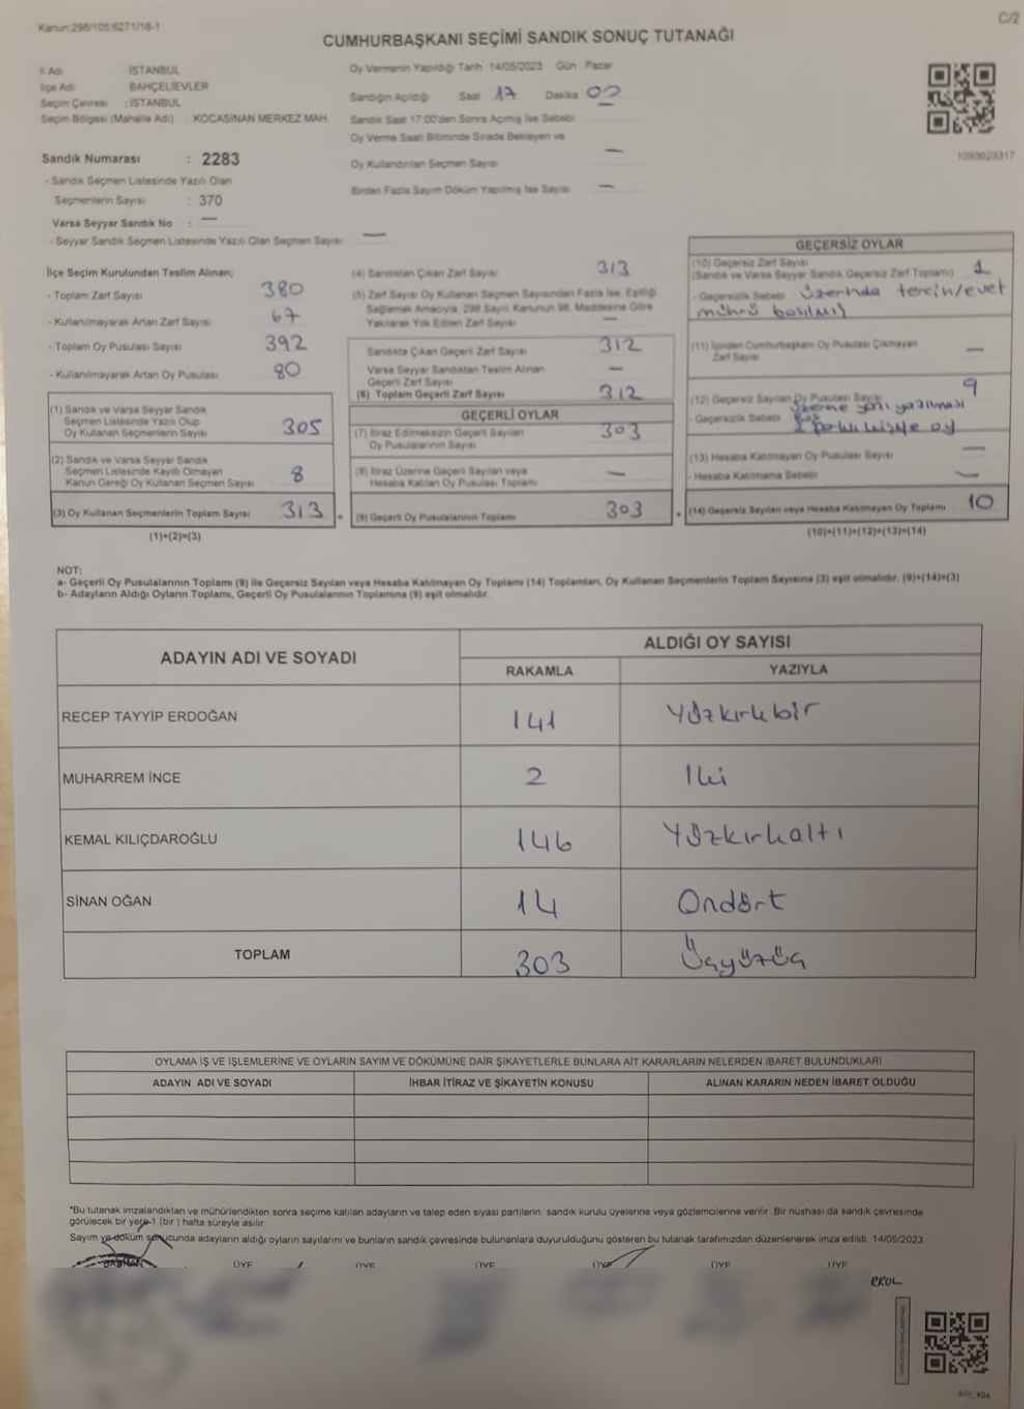 Kanun:298/105;6271/18-1
C/2
CUMHURBAŞKANI SEÇİMİ SANDIK SONUÇ TUTANAĞI
İl Adı : İSTANBUL
İlçe Adı : BAHÇELİEVLER
Seçim Çevresi : İSTANBUL
Seçim Bölgesi (Mahalle Adı) : KOCASİNAN MERKEZ MAH.
Oy Vermenin Yapıldığı Tarih 14/05/2023 Gün Pazar
Sandığın Açıldığı Saat 17 Dakika 00
Sandık Saat 17:00'den Sonra Açılmış İse Sebebi
Oy Verme Saati Bitiminde Sırada Bekleyen ve
Oy Kullandırılan Seçmen Sayısı —
Birden Fazla Sayım Döküm Yapılmış İse Sayısı —
Sandık Numarası : 2283
- Sandık Seçmen Listesinde Yazılı Olan
Seçmenlerin Sayısı : 370
Varsa Seyyar Sandık No : —
- Seyyar Sandık Seçmen Listesinde Yazılı Olan Seçmen Sayısı —
İlçe Seçim Kurulundan Teslim Alınan;
- Toplam Zarf Sayısı 380
- Kullanılmayarak Artan Zarf Sayısı 67
- Toplam Oy Pusulası Sayısı 392
- Kullanılmayarak Artan Oy Pusulası 80
(1) Sandık ve Varsa Seyyar Sandık
Seçmen Listesinde Yazılı Olup
Oy Kullanan Seçmenlerin Sayısı 305
(2) Sandık ve Varsa Seyyar Sandık
Seçmen Listesinde Kayıtlı Olmayan
Kanun Gereği Oy Kullanan Seçmen Sayısı 8
(3) Oy Kullanan Seçmenlerin Toplam Sayısı 313
(1)+(2)=(3)
(4) Sandıktan Çıkan Zarf Sayısı 313
(5) Zarf Sayısı Oy Kullanan Seçmen Sayısından Fazla İse, Eşitliği
Sağlamak Amacıyla, 298 Sayılı Kanunun 98. Maddesine Göre
Yakılarak Yok Edilen Zarf Sayısı —
Sandıkta Çıkan Geçerli Zarf Sayısı 312
Varsa Seyyar Sandıktan Teslim Alınan
Geçerli Zarf Sayısı —
(6) Toplam Geçerli Zarf Sayısı 312
GEÇERLİ OYLAR
(7) İtiraz Edilmeksizin Geçerli Sayılan
Oy Pusulalarının Sayısı 303
(8) İtiraz Üzerine Geçerli Sayılan veya
Hesaba Katılan Oy Pusulası Toplamı —
(9) Geçerli Oy Pusulalarının Toplamı 303
GEÇERSİZ OYLAR
(10) Geçersiz Zarf Sayısı
(Sandık ve Varsa Seyyar Sandık Geçersiz Zarf Toplamı) 1
- Geçersizlik Sebebi üzerinde tercih/evet
mührü basılmış
(11) İçinden Cumhurbaşkanı Oy Pusulası Çıkmayan
Zarf Sayısı —
(12) Geçersiz Sayılan Oy Pusulası Sayısı 9
- Geçersizlik Sebebi
(13) Hesaba Katılmayan Oy Pusulası Sayısı —
- Hesaba Katılmama Sebebi —
(14) Geçersiz Sayılan veya Hesaba Katılmayan Oy Toplamı 10
(10)+(11)+(12)+(13)=(14)
NOT:
a- Geçerli Oy Pusulalarının Toplamı (9) ile Geçersiz Sayılan veya Hesaba Katılmayan Oy Toplamı (14) Toplamları, Oy Kullanan Seçmenlerin Toplam Sayısına (3) eşit olmalıdır. (9)+(14)=(3)
b- Adayların Aldığı Oyların Toplamı, Geçerli Oy Pusulalarının Toplamına (9) eşit olmalıdır.
ADAYIN ADI VE SOYADI
ALDIĞI OY SAYISI
RAKAMLA YAZIYLA
RECEP TAYYİP ERDOĞAN 141 Yüzkırkbir
MUHARREM İNCE 2 İki
KEMAL KILIÇDAROĞLU 146 Yüzkırkaltı
SİNAN OĞAN 14 Ondört
TOPLAM 303 Üçyüzüç
OYLAMA İŞ VE İŞLEMLERİNE VE OYLARIN SAYIM VE DÖKÜMÜNE DAİR ŞİKAYETLERLE BUNLARA AİT KARARLARIN NELERDEN İBARET BULUNDUKLARI
ADAYIN ADI VE SOYADI İHBAR İTİRAZ VE ŞİKAYETİN KONUSU ALINAN KARARIN NEDEN İBARET OLDUĞU
*Bu tutanak imzalandıktan ve mühürlendikten sonra seçime katılan adayların ve talep eden siyasi partilerin sandık kurulu üyelerine veya gözlemcilerine verilir. Bir nüshası da sandık çevresinde
görülecek bir yere 1 (bir) hafta süreyle asılır.
Sayım ve döküm sonucunda adayların aldığı oyların sayılarını ve bunların sandık çevresinde bulunanlara duyurulduğunu gösteren bu tutanak tarafımızdan düzenlenerek imza edildi. 14/05/2023
BAŞKAN ÜYE ÜYE ÜYE ÜYE ÜYE ÜYE
EROL